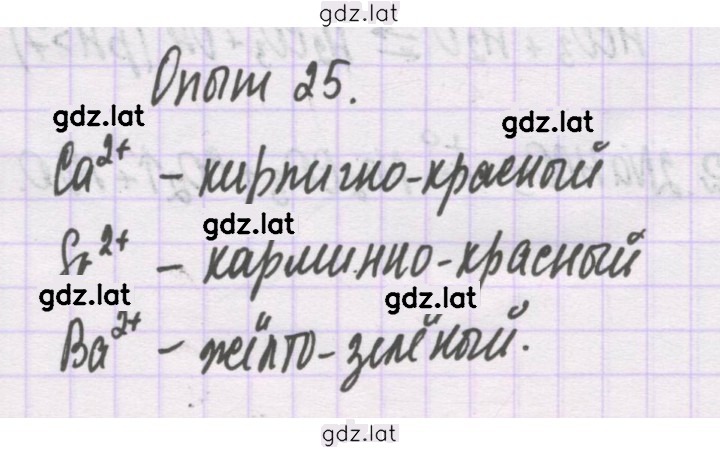 gdz.lat
Опыт 25.
gdz.lat
gdz.lat
Ca²⁺ - кирпично-красный
gdz.lat
Sr²⁺ - карминно-красный
gdz.lat
gdz.lat
Ba²⁺ - жёлто-зелёный.
gdz.lat